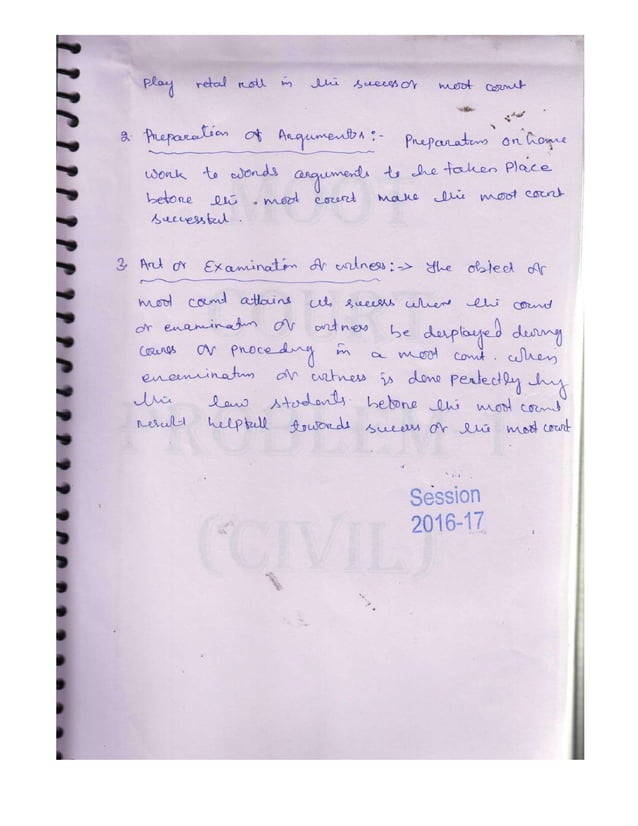 Play retal roll in the success of moot court
2. Preparation of Arguments :- Preparation or home
work to words arguments to be taken place
before the moot court make the moot court
successful.
3. Art of Examination of witness :-> The object of
moot court attains its success where the court
of examination of witness be desplayed during
courses of proceding in a moot court. when
examination of witness is done perfectly by
the law students before the moot court
result helpfull towards success of the moot court
Session
2016-17
MOOT
COURT
PROBLEM-1
(CIVIL)